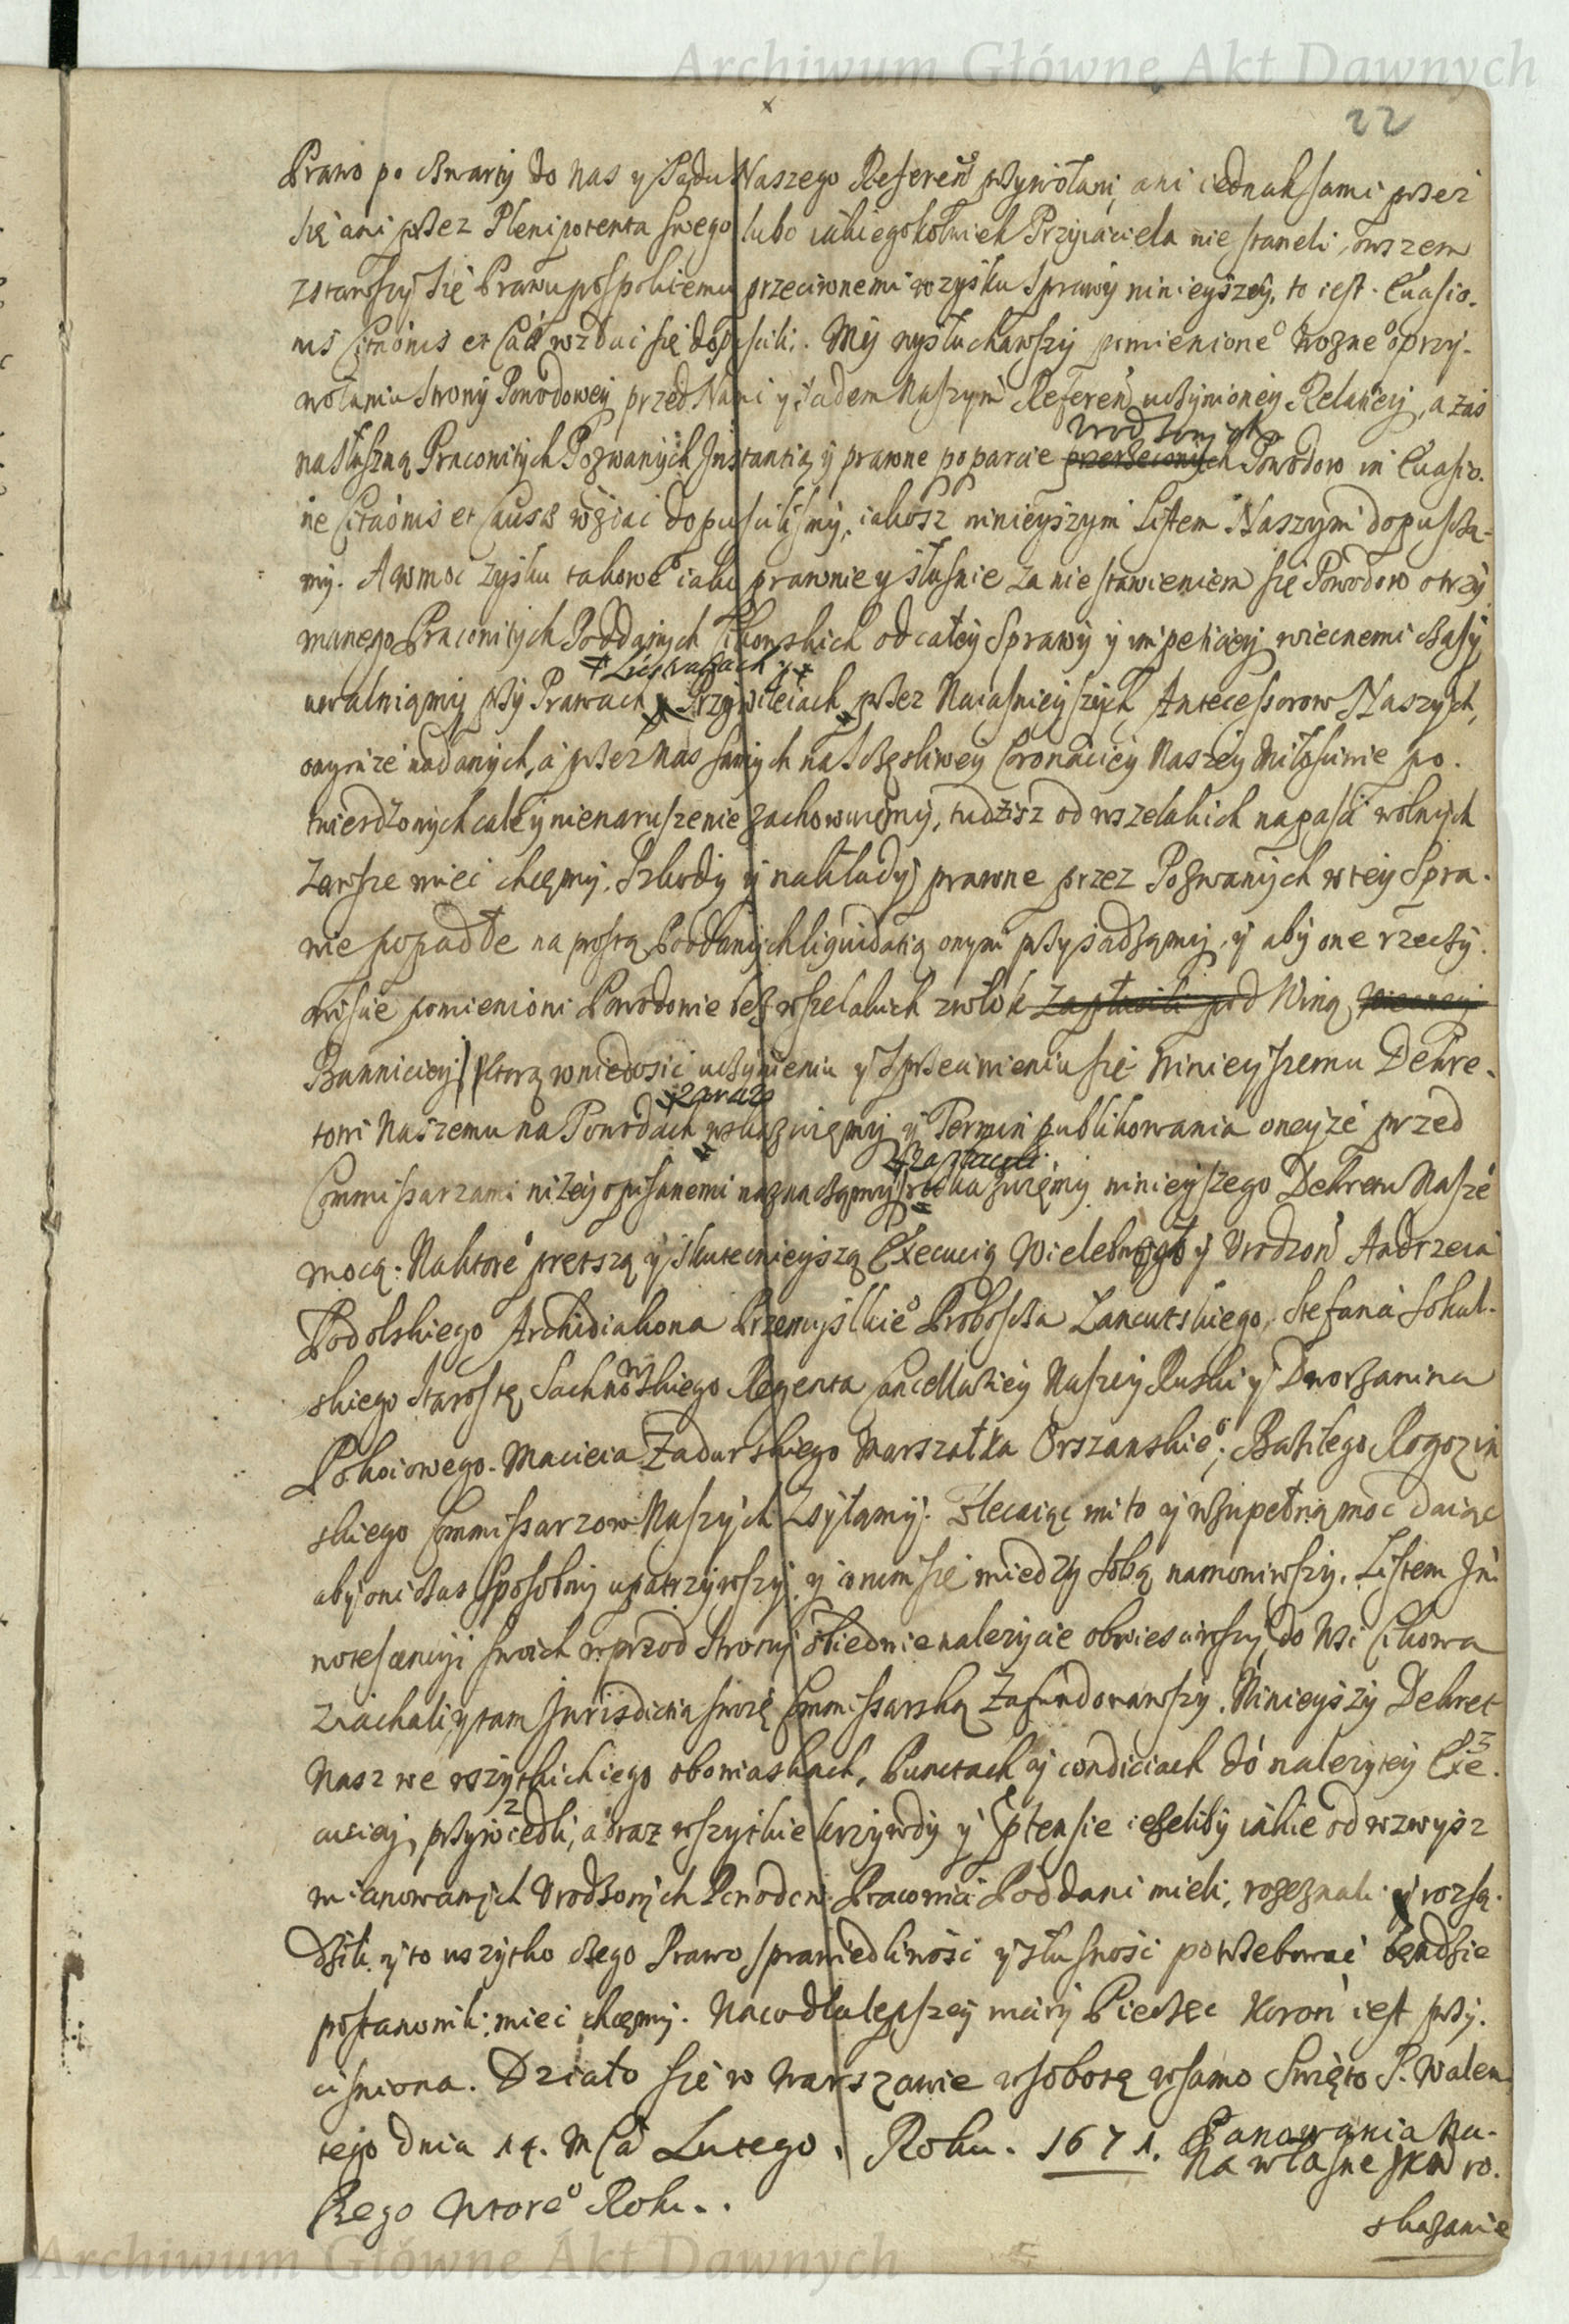 Archiwum Główne Akt Dawnych
22
Prawo po czwarty do Nas y Sądu Naszego Refereń przywołani, ani iednak sami przez
się ani przez Plenipotenta swego lubo iakiegokolwiek Przyiaciela nie staneli, owszem
zstawszy się Prawu pospolitemu przeciwnemi w zysku Sprawy ninieyszey, to iest. Euasio-
nis Citaonis et Cau wzdac się dopuscili. My wysłuchawszy pomienione° Wozne° o przy-
wołaniu Strony Powodowey przed Nami y Sadem Naszym Refereń uczynioney Relaciey, a zas
Urodzonych
na słuszną Pracowitych Pozwanych Instantią y prawne poparcie przerzeconych Powodow in Euasio-
ne Citaonis et Causæ wzdac dopuscilismy, iakosz ninieyszym Listem Naszym dopuscza-
my. A w moc zysku takowe° iako prawnie y słusnie za nie stawieniem się Powodow otrzy
manego Pracowitych Poddanych Cikowskich od całey Sprawy y impeticiey wiecznemi czasy
Lustratiach y
uwalniamy przy Prawach y Przywileiach przez Naiasnieyszych Antecessorow Naszych,
onymże nadanych, a przez Nas samych na Szczęsliwey Coronaciey Naszey Miłosciwie po-
twierdzonych cale y nienaruszenie zachowuiemy, tudziesz od wszelakich napasci wolnych
zawsze miec chcemy. Szkody y nakłady prawne przez Pozwanych w tey Spra-
wie popadłe na prostą Poddanych liquidatią onym przysądzamy, y aby one rzeczy-
wiscie pomienioni Powodowie bez wszelakich zwłok zapłacili pod Winą wieczney
Banniciey ktorą w niedosic uczynieniu y Sprzeciwieniu się Ninieyszemu Dekre-
zaraz
towi Naszemu na Powodach wskazuiemy y Termin publikowania oneyże przed
zapłacili
Commissarzami niżey opisanemi naznaczamy rozkazuiemy ninieyszego Dekretu Nasze°
mocą. Na ktore° prętszą y skutecznieyszą Execucią Wielebnego y Urodzoń Andrzeia
Podolskiego Archidiakona Przemyslkie° Proboscza Łancutskiego, Stefana Sokul-
skiego Starostę Sachnowskiego Regenta Cancellariey Naszey Ruskiy Dworzanina
Pokoiowego. Macieia Zadurskiego Marszałka Orszanskie°, Bazilego Rogozin
skiego Commissarzow Naszych Zsyłamy. Zlecaiąc im to y wzupełną moc daiąc
aby oni czas sposobny upatrzywszy y o nim się miedzy sobą namowiwszy, Listem In
notescencyi swoich wprzod Strony obiedwie nalezycie obwiesciwszy, do Wsi Cikowa
ziachali, y tam Jurisdictią swoię Commissarską zafundowawszy. Ninieyszy Dekret
Nasz we wszytkich iego obowiaskach, Punctach y condiciach do należytey Exe-
cuciey przywiedli, a oraz wszytkie krzywdy y ptensie ieseliby iakie od wzwysz
mianowanych Urodzonych Powodow Pracowici Poddani mieli, rozeznali y rozsą-
dzili y to wszytko czego Prawo sprawiedliwość y słusność potrzebować bendzie
postanowili miec chcemy. Na co dla lepszey wiary Pieczęc Koroń iest przy-
cisniona. Działo się w Warszawie w sobotę w samo Swięto S. Walen-
tego dnia 14. Mca Lutego. Roku. 1671. Panowania Na-
szego Wtore° Roku..
Na własne JKM ro-
skazanie
Archiwum Główne Akt Dawnych